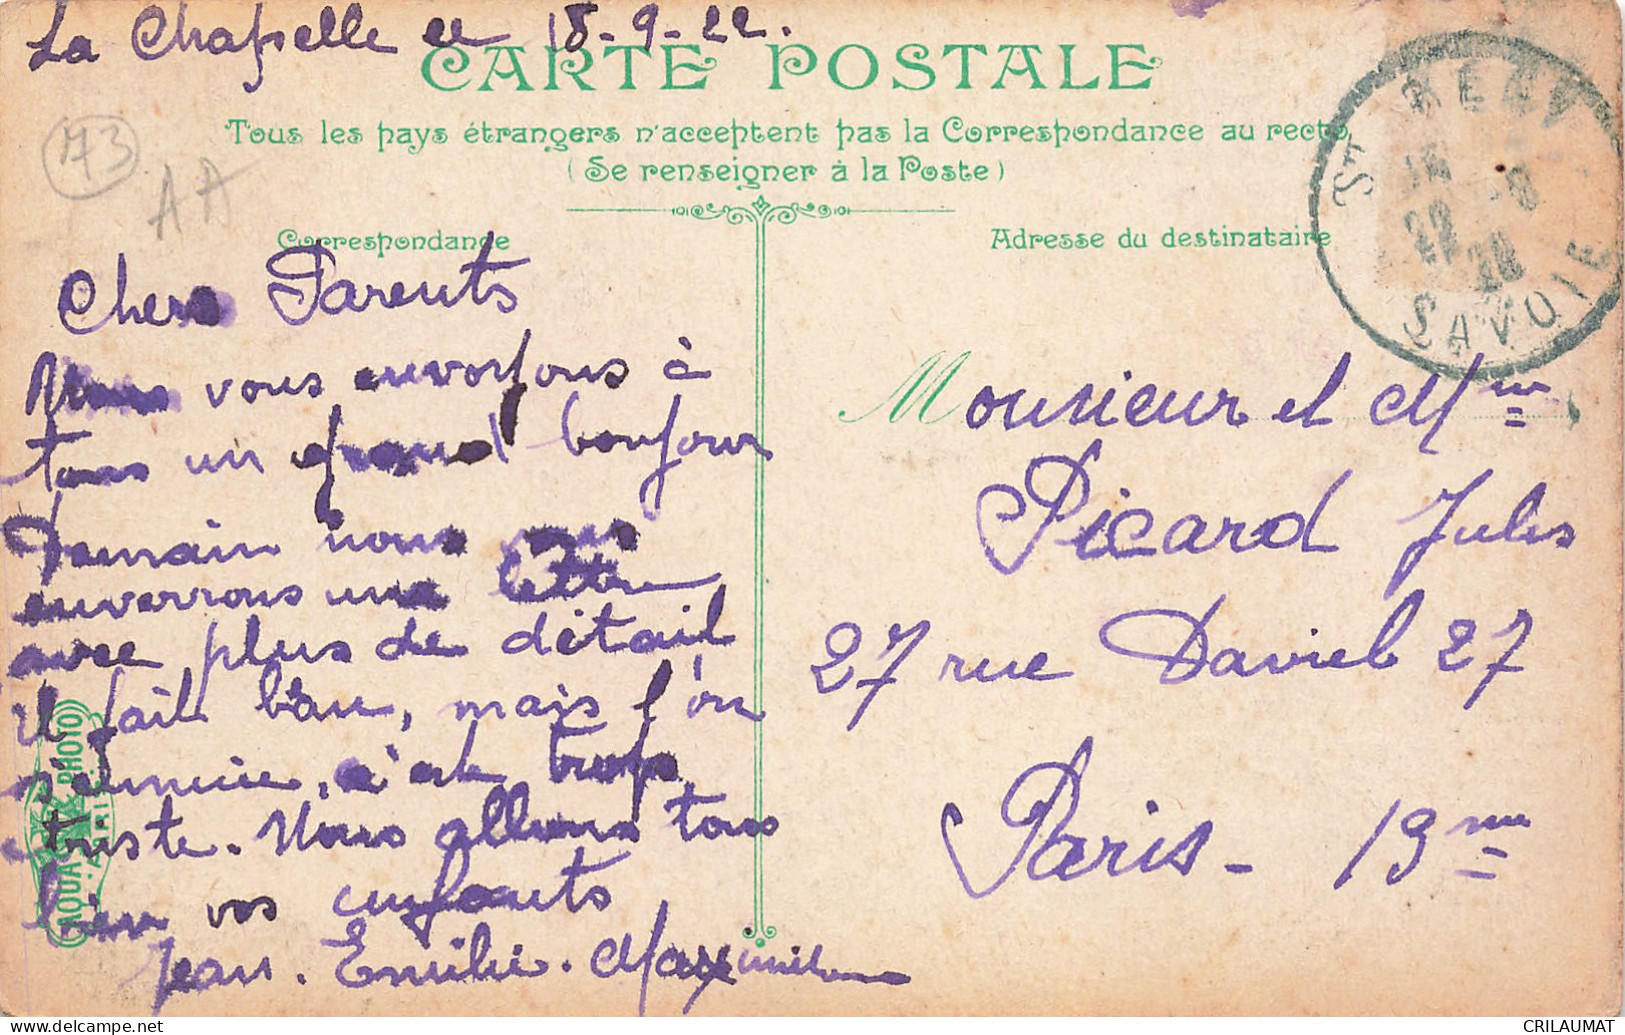 La Chapelle le 18-9-22.
CARTE POSTALE
Tous les pays étrangers n'acceptent pas la Correspondance au recto
(Se renseigner à la Poste)
73
AA
Correspondance
Chers Parents
Nous vous envoyons à
tous un grand bonjour
Demain nous vous
enverrons une lettre
avec plus de détail
il fait bau, mais l'on
s'ennuie, c'est trop
triste. Nous allons tous
bien vos enfants
Jean. Emilie. Maximilienne
AQUA PHOTO
PARIS
Adresse du destinataire
Monsieur et Mme
Picard Jules
27 rue Daviel 27
Paris - 13me
ST REMY
18 - 9
22
SAVOIE
CRILAUMAT